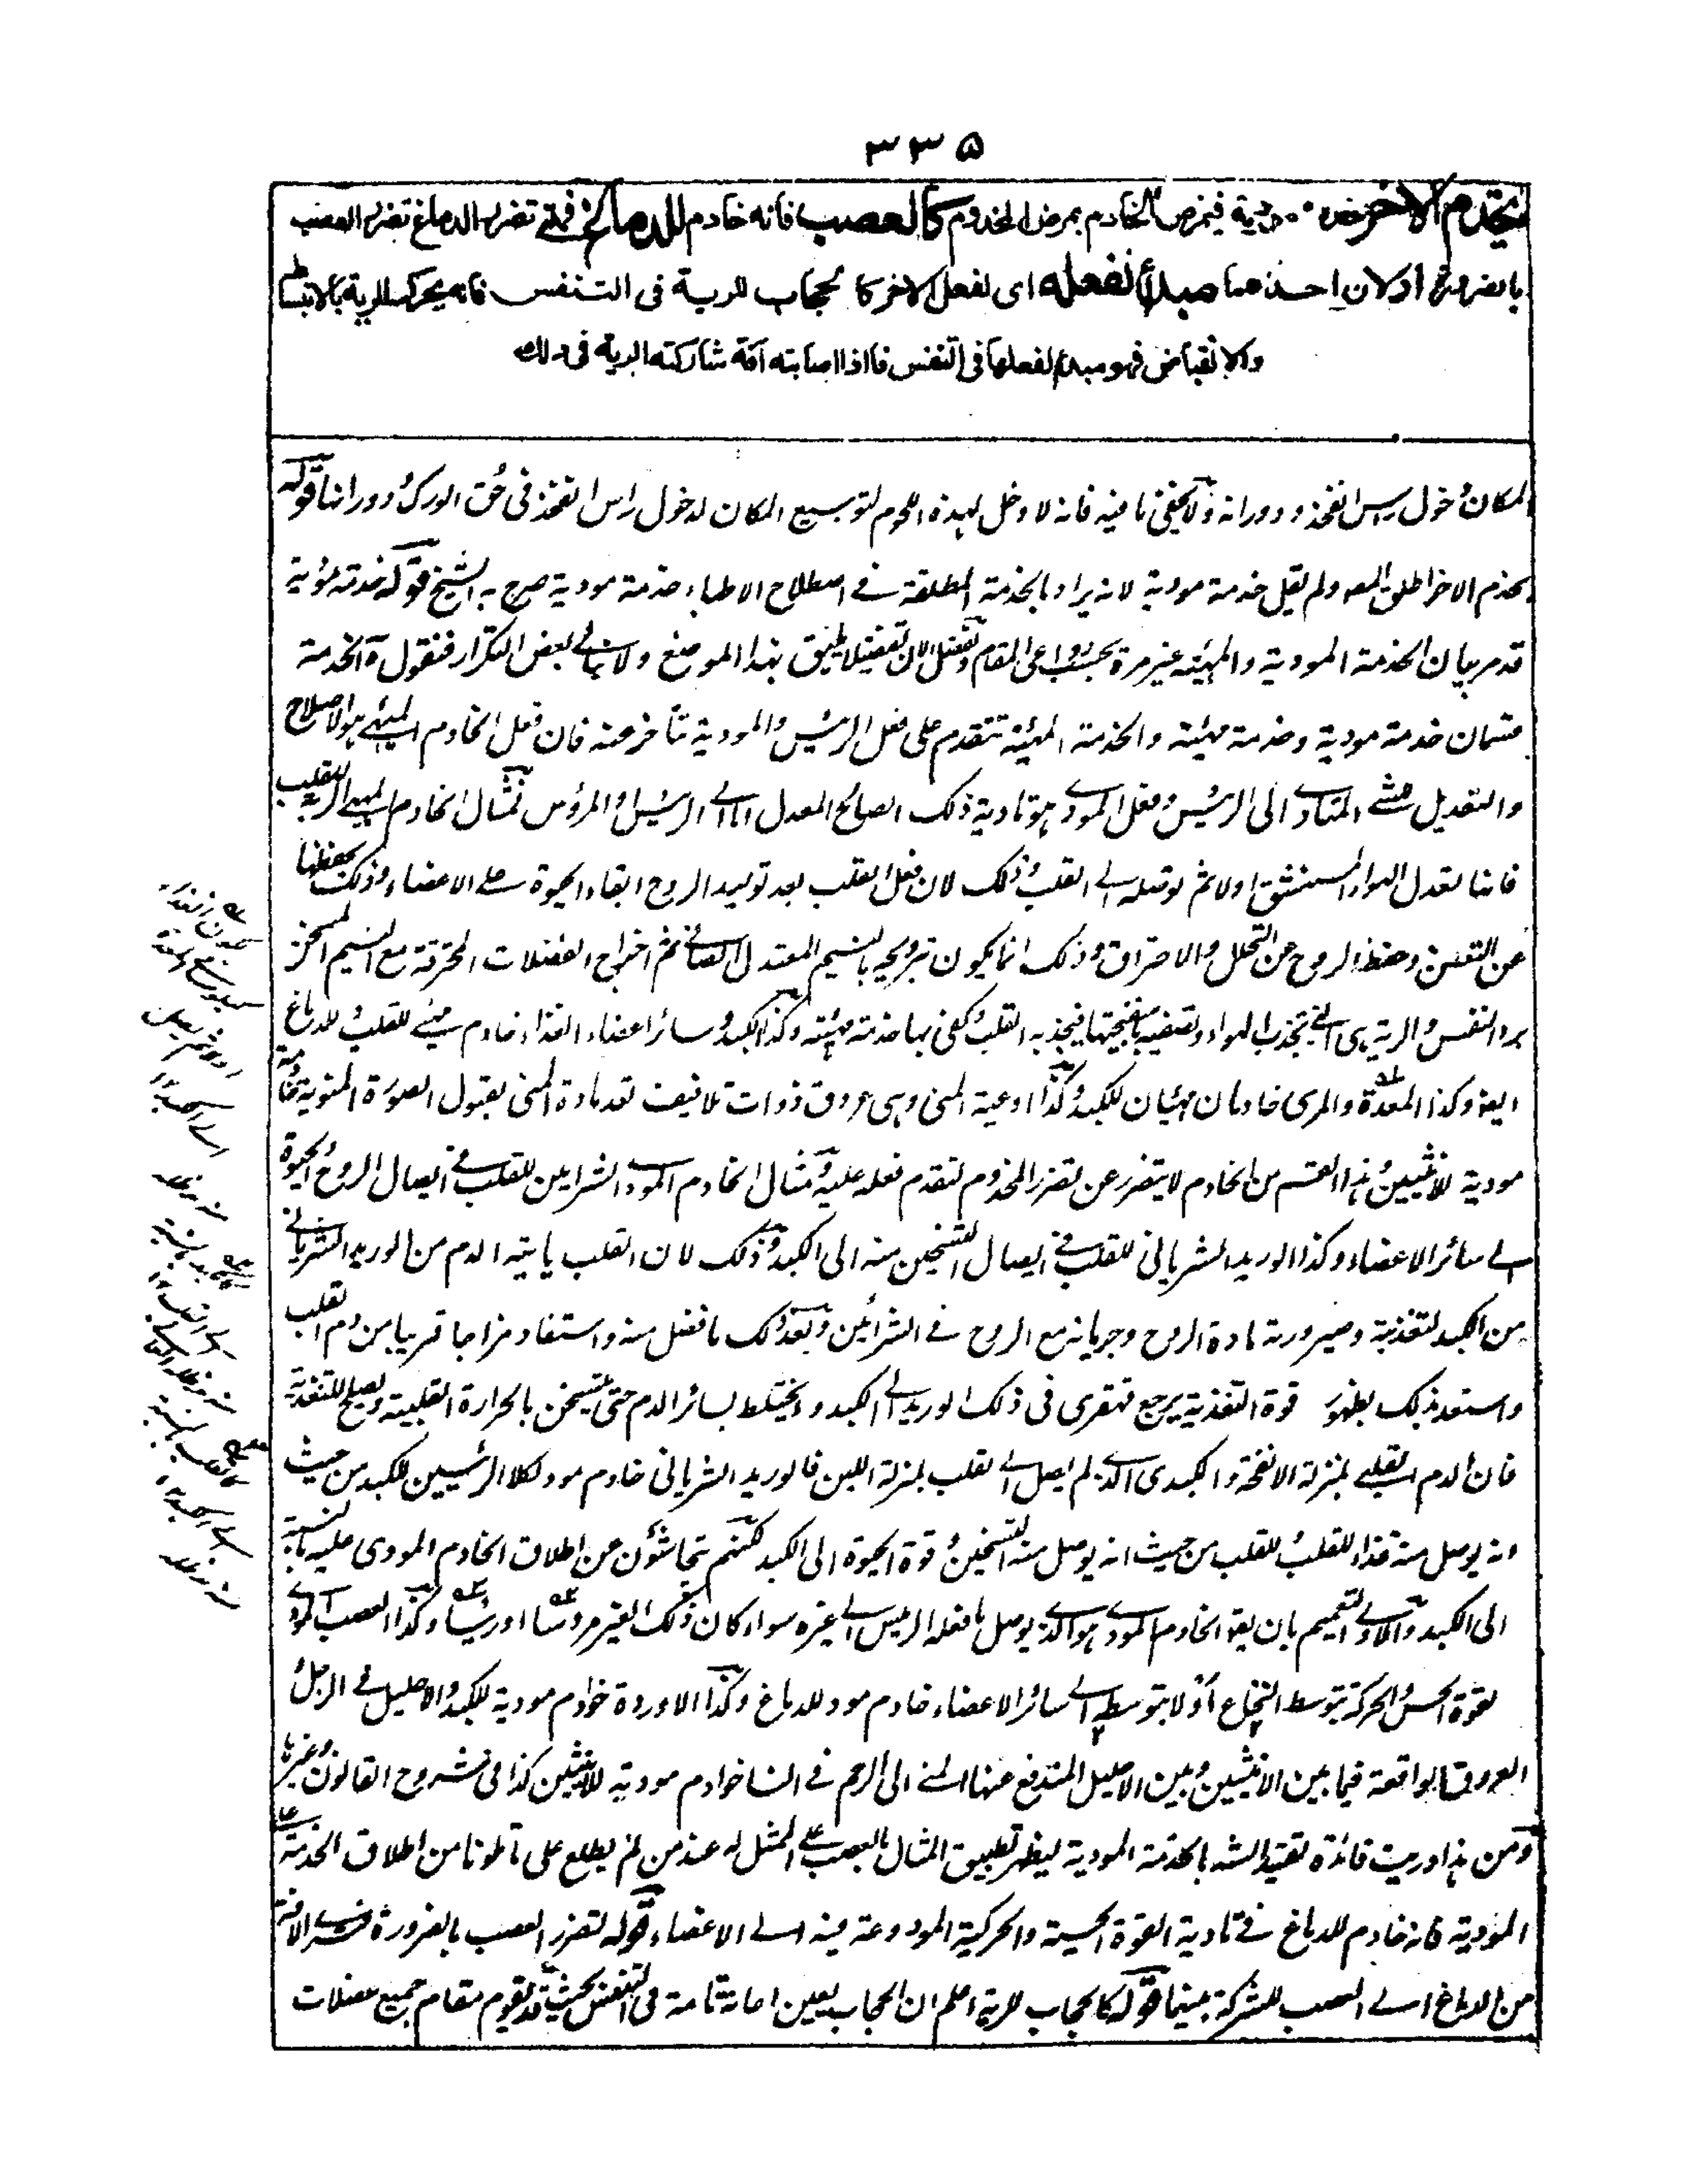 ٣٣٥
يخدم الاخر خدمة مودية فيمرض الخادم بمرض المخدوم كالعصب فانه خادم للدماغ فمتى تضرر الدماغ تضرر العصب
بالضرورة او لان احدهما مبدأ لفعله اى لفعل الاخر كالحجاب للرية فى التنفس فانه يحرك الرية بالانبساط
والانقباض فهو مبدء لفعلها فى التنفس فاذا اصابته آفة شاركته الرية فى ذلك
المكان دخول راس الفخذ ودورانه ولا يخفى ما فيه فانه لا دخل لهذه اللحوم لتوسيع المكان لدخول راس الفخذ فى حُق الورك ودورانها قوله
يخدم الاخر اطلق المصه ولم يقل خدمة مودية لانه يراد بالخدمة المطلقة فے اصطلاح الاطباء خدمة مودية صرح به الشيخ قوله خدمة مؤدية
قد مر بيان الخدمة المودية والمهيئة غير مرة بحسب دواعى المقام ونفصل الان تفصيلا يليق بهذا الموضع ولا نبالى بعض التكرار فنقول آه الخدمة
قسمان خدمة مودية وخدمة مهيئة والخدمة المهيئة تتقدم على فعل الرئيس والمودية تتأخر عنه فان فعل الخادم المهيئ هو الاصلاح
والتعديل المتادى الى الرئيس وفعل المودى هو تادية ذلك الصالح المعدل الى الرئيس او المرؤس فمثال الخادم المهيئ الرية للقلب
فانها تعدل الهواء المستنشق اولا ثم توصله الى القلب وذلك لان فعل القلب بعد توليد الروح ابقاء الحيوة على الاعضاء وذلك بحفظها
عن التعفن وحفظ الروح عن التحلل والاحتراق وذلك انما يكون بترويحه بالنسيم المعتدل الصافى ثم اخراج الفضلات المحترقة مع النسيم المسخن
برد النفس والرية هى التى تجذب الهواء وتصفيه فيجذبه القلب كفى بها خدمة مهيئة وكذا الكبد وسائر اعضاء الغذاء خادم مهيئ للقلب وللدماغ
ايضه وكذا المعدة والمرى خادمان مهيئان للكبد وكذا اوعية المنى وهى عروق ذوات تلافيف تعد مادة المنى بقبول الصورة المنوية
مودية للانثيين وهذا القسم من الخادم لا يتضرر عن تضرر المخدوم لتقدم فعله عليه ومثال الخادم المودى الشرايين للقلب فى ايصال الروح والحيوة
الى سائر الاعضاء وكذا الوريد الشريانى للقلب فى ايصال التسخين منه الى الكبد وذلك لان القلب ياتيه الدم من الوريد الشريانى
من الكبد لتغذيته وصيرورته مادة الروح وجريانه مع الروح فى الشرائين وبعد ذلك ما فضل منه واستفاد مزاجا قريبا من دم القلب
واستعد بذلك بظهور قوة التغذية يرجع قهقرى فى ذلك الوريد الى الكبد ويختلط بسائر الدم حتى يتسخن بالحرارة القلبية ويصلح للتغذية
فان الدم القلبى بمنزلة الانفحة والكبدى الذى لم يصل الى القلب بمنزلة اللبن فالوريد الشريانى خادم مود لكلا الرئيسين للكبد من حيث
انه يوصل منه غذاء للقلب وللقلب من حيث انه يوصل منه التسخين وقوة الحيوة الى الكبد لكنهم يتحاشون عن اطلاق الخادم المودى عليه بالنسبة
الى الكبد والاولى التعميم بان يقه الخادم المودى هو الذى يوصل ما فعله الرئيس الى غيره سواء كان ذلك الغير مرؤسا او رئيسا وكذا العصب المودى
لقوة الحس والحركة بتوسط النخاع او لا بتوسطه الى سائر الاعضاء خادم مود للدماغ وكذا الاوردة خوادم مودية للكبد والاحليل فى الرجل
العروق الواقعة فيما بين الانثيين وبين الاحليل المندفع عنها المنى الى الرحم فى النسا خوادم مودية للانثيين كذا فى شروح القانون وغيرها
ومن هذا دريت فائدة تقييد الشه بالخدمة المودية ليظهر تطبيق المثال بالعصب على الممثل له عند من لم يطلع على ما تلونا من اطلاق الخدمة على
المودية فانه خادم للدماغ فى تادية القوة الحسية والحركية المودوعة فيه الى الاعضاء قوله تضرر العصب بالضرورة لتسرى الآفة
من الدماغ الى العصب للشركة بينهما قوله كالحجاب للرية اعلم ان الحجاب يعين اعانة تامة فى التنفس بحيث قد يقوم مقام جميع عضلات